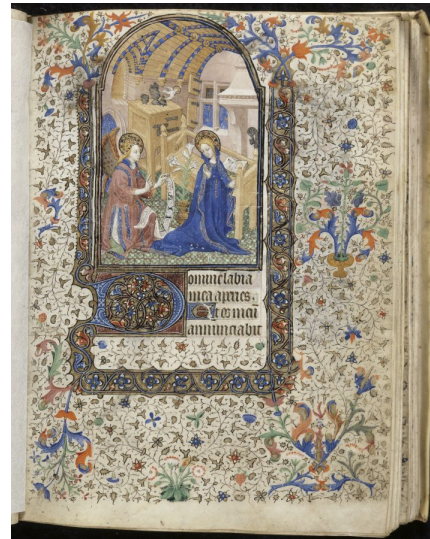 omine labia
mea aperies.
Et os meu
annunciabit